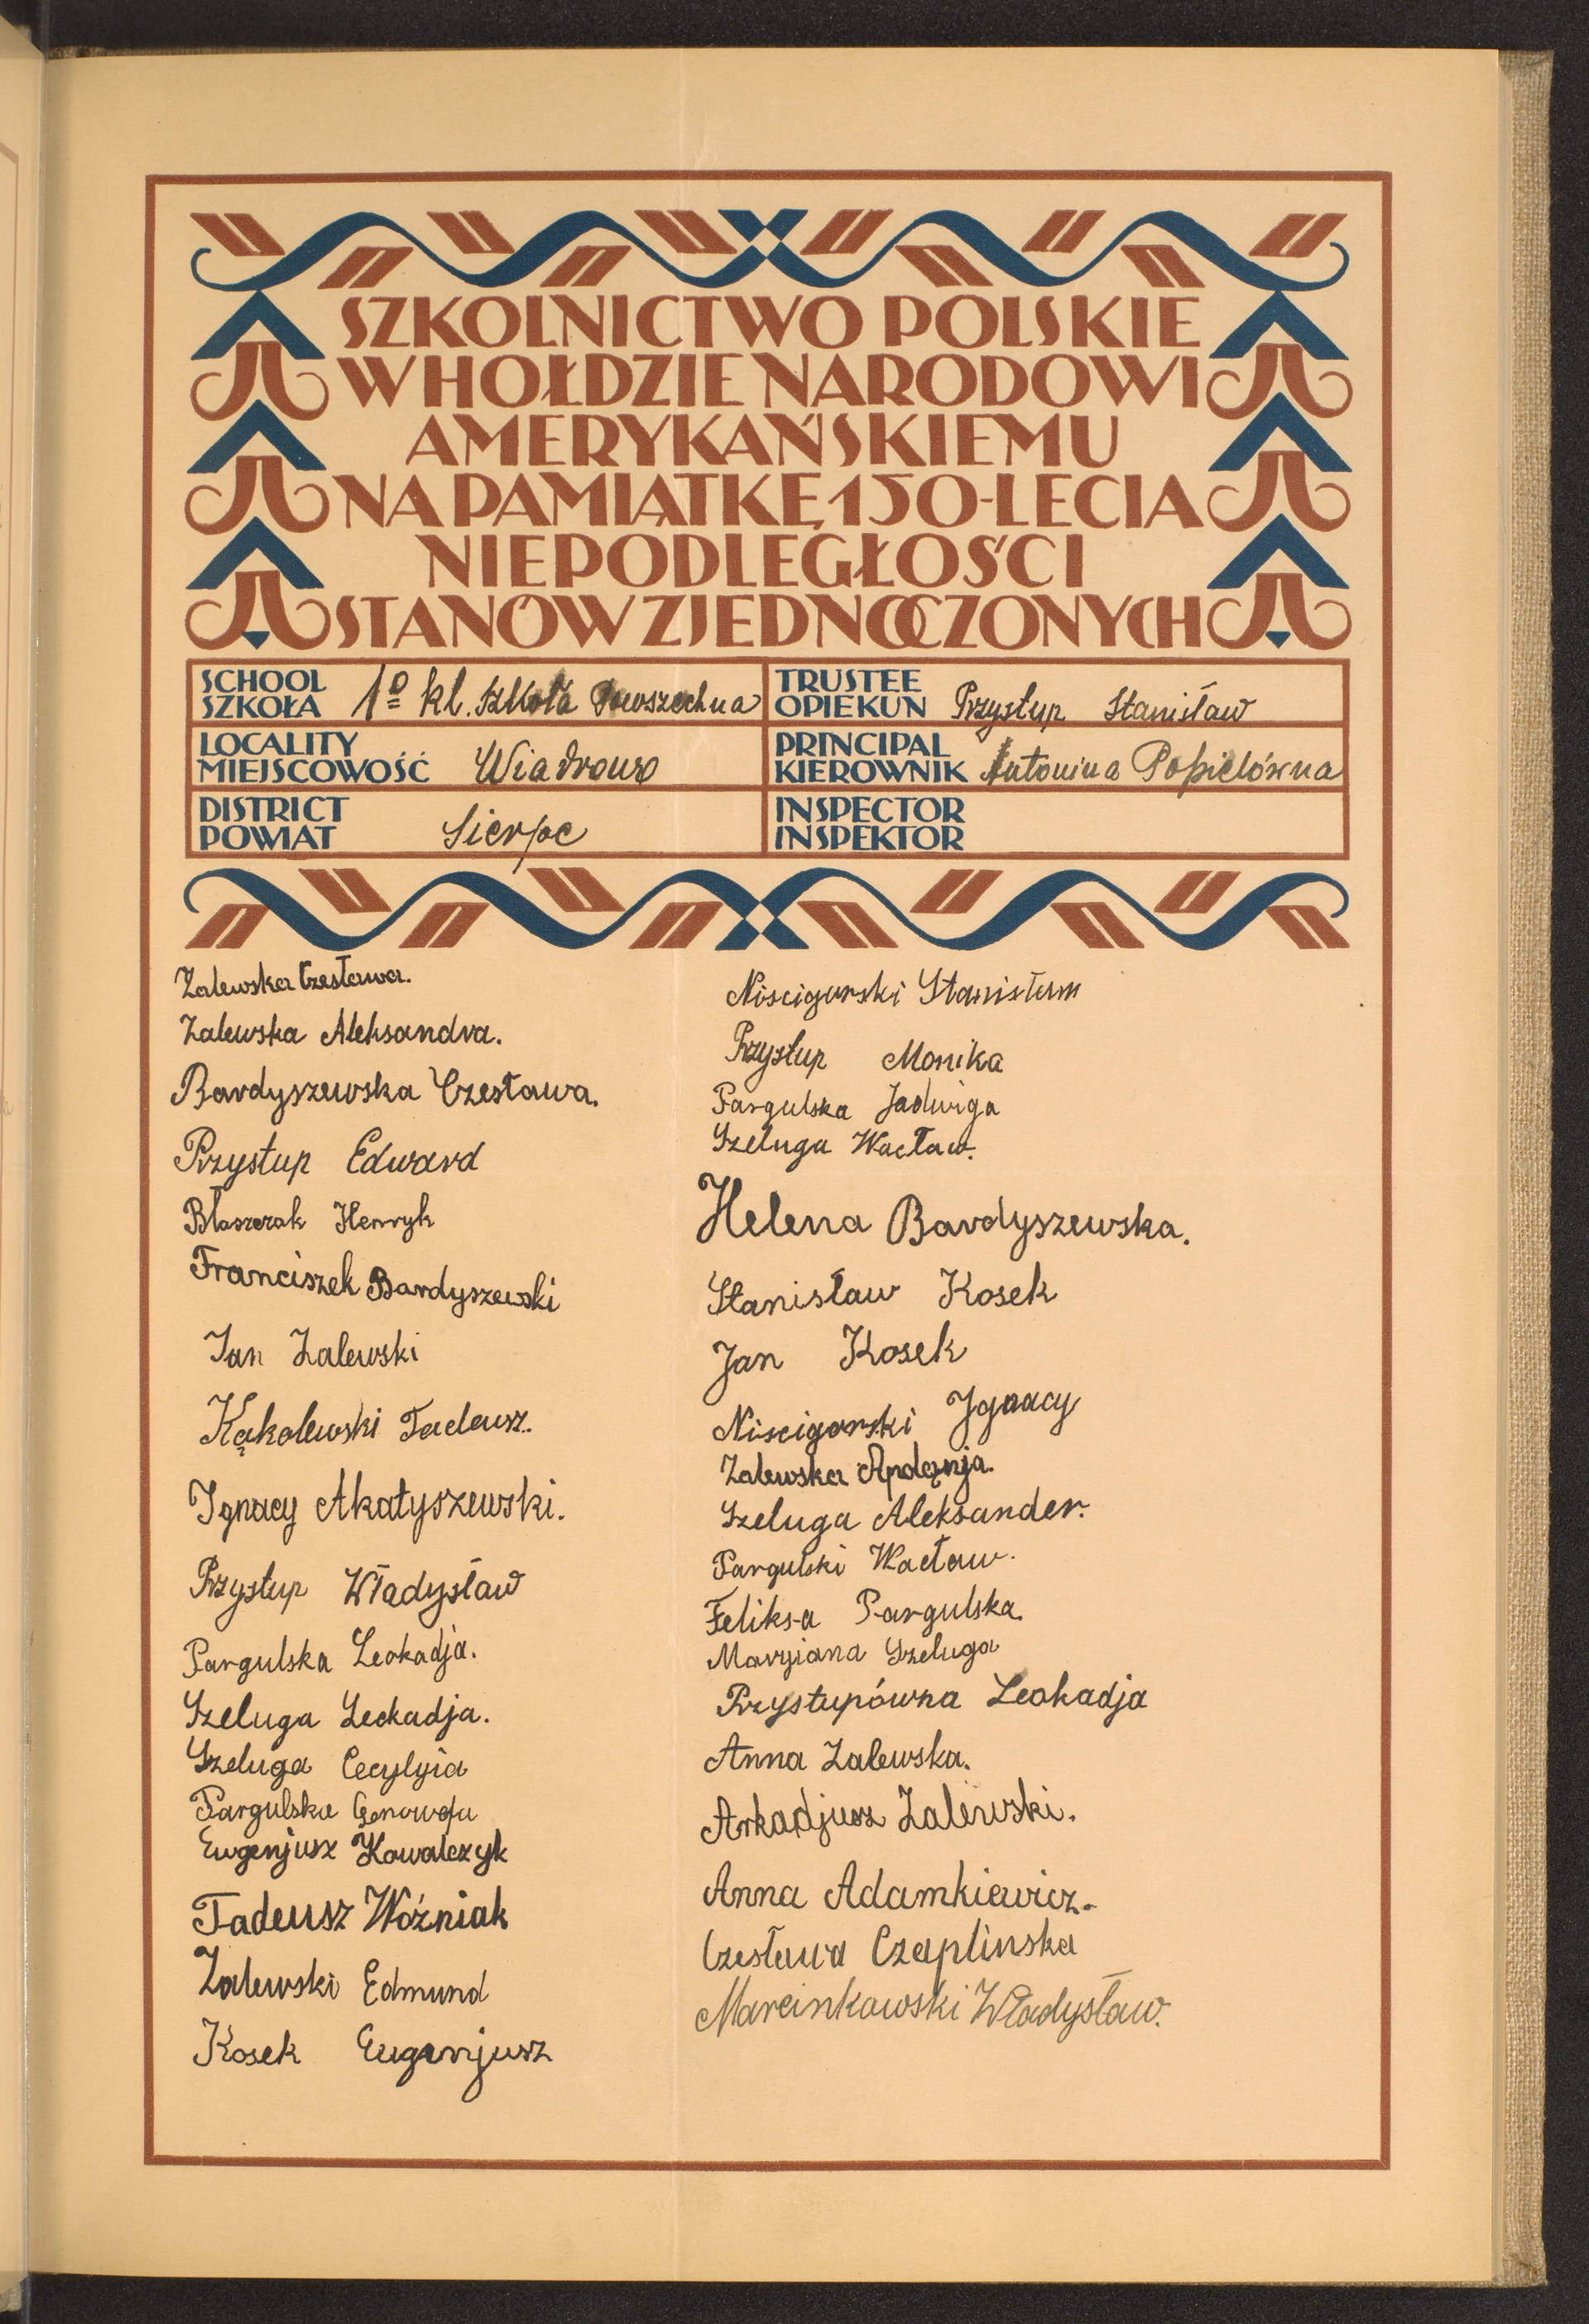 SZKOLNICTWO POLSKIE
W HOŁDZIE NARODOWI
AMERYKAŃSKIEMU
NA PAMIĄTKĘ 150-LECIA
NIEPODLEGŁOŚCI
STANÓW ZJEDNOCZONYCH
SCHOOL
SZKOŁA 1º kl. Szkoła Powszechna
TRUSTEE
OPIEKUN Przystup Stanisław
LOCALITY
MIEJSCOWOŚĆ Wiadrowo
PRINCIPAL
KIEROWNIK Antonina Popielówna
DISTRICT
POWIAT Sierpc
INSPECTOR
INSPEKTOR
Zalewska Czesława.
Zalewska Aleksandra.
Bardyszewska Czesława.
Przystup Edward
Błaszczak Henryk
Franciszek Bardyszewski
Jan Zalewski
Kąkolewski Tadeusz.
Ignacy Akatyszewski.
Przystup Władysław
Pargulska Leokadja.
Szeluga Leokadja.
Szeluga Cecylyia
Pargulska Genowefa
Eugenjusz Kowalczyk
Tadeusz Woźniak
Zalewski Edmund
Kosek Eugenjusz
Niscigorski Stanisław
Przystup Monika
Pargulska Jadwiga
Szeluga Wacław.
Helena Bardyszewska.
Stanisław Kosek
Jan Kosek
Niscigorski Ignacy
Zalewska
Szeluga Aleksander.
Pargulski Wacław.
Feliksa Pargulska.
Maryiana Szeluga
Przystupówna Leokadja
Anna Zalewska.
Arkadjusz Zalewski.
Anna Adamkiewicz.
Czesława Czaplinska
Marcinkowski Władysław.